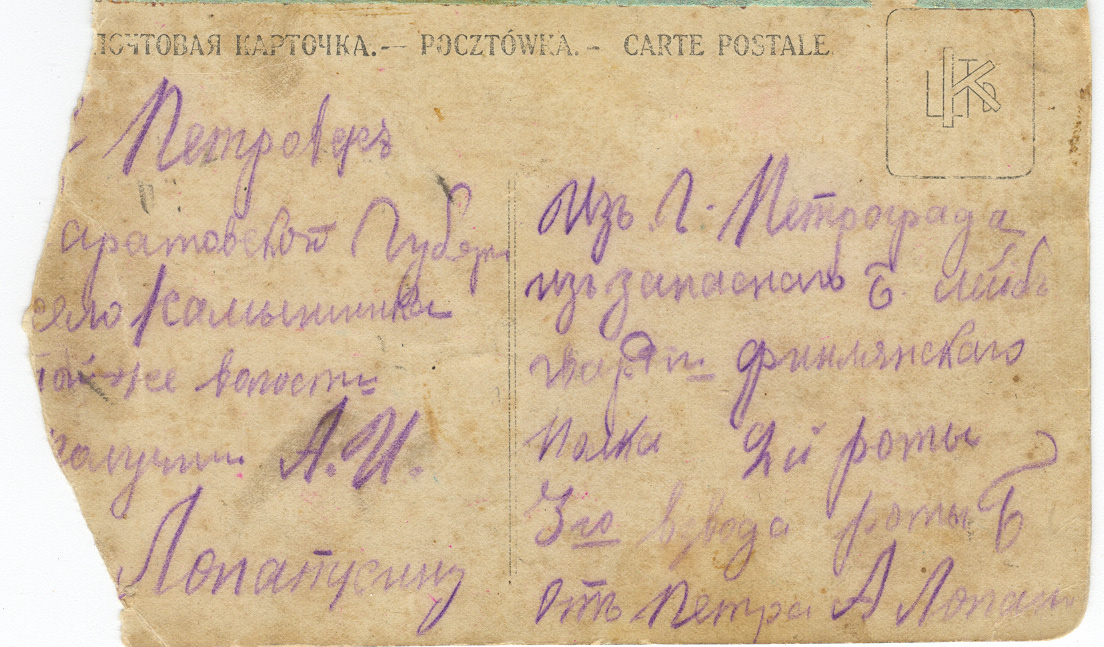 ПОЧТОВАЯ КАРТОЧКА.— POCZTÓWKA.— CARTE POSTALE
Петровскъ
аратовской Губерн
село Камышинка
той-же волости
получить А. И.
Лопатусину
Изъ Г. Петрограда
изъ запаснаго Б. лейбъ
гвардіи Финлянскаго
Полка 2й роты
3го взвода роты Б
Отъ Петра А Лопат